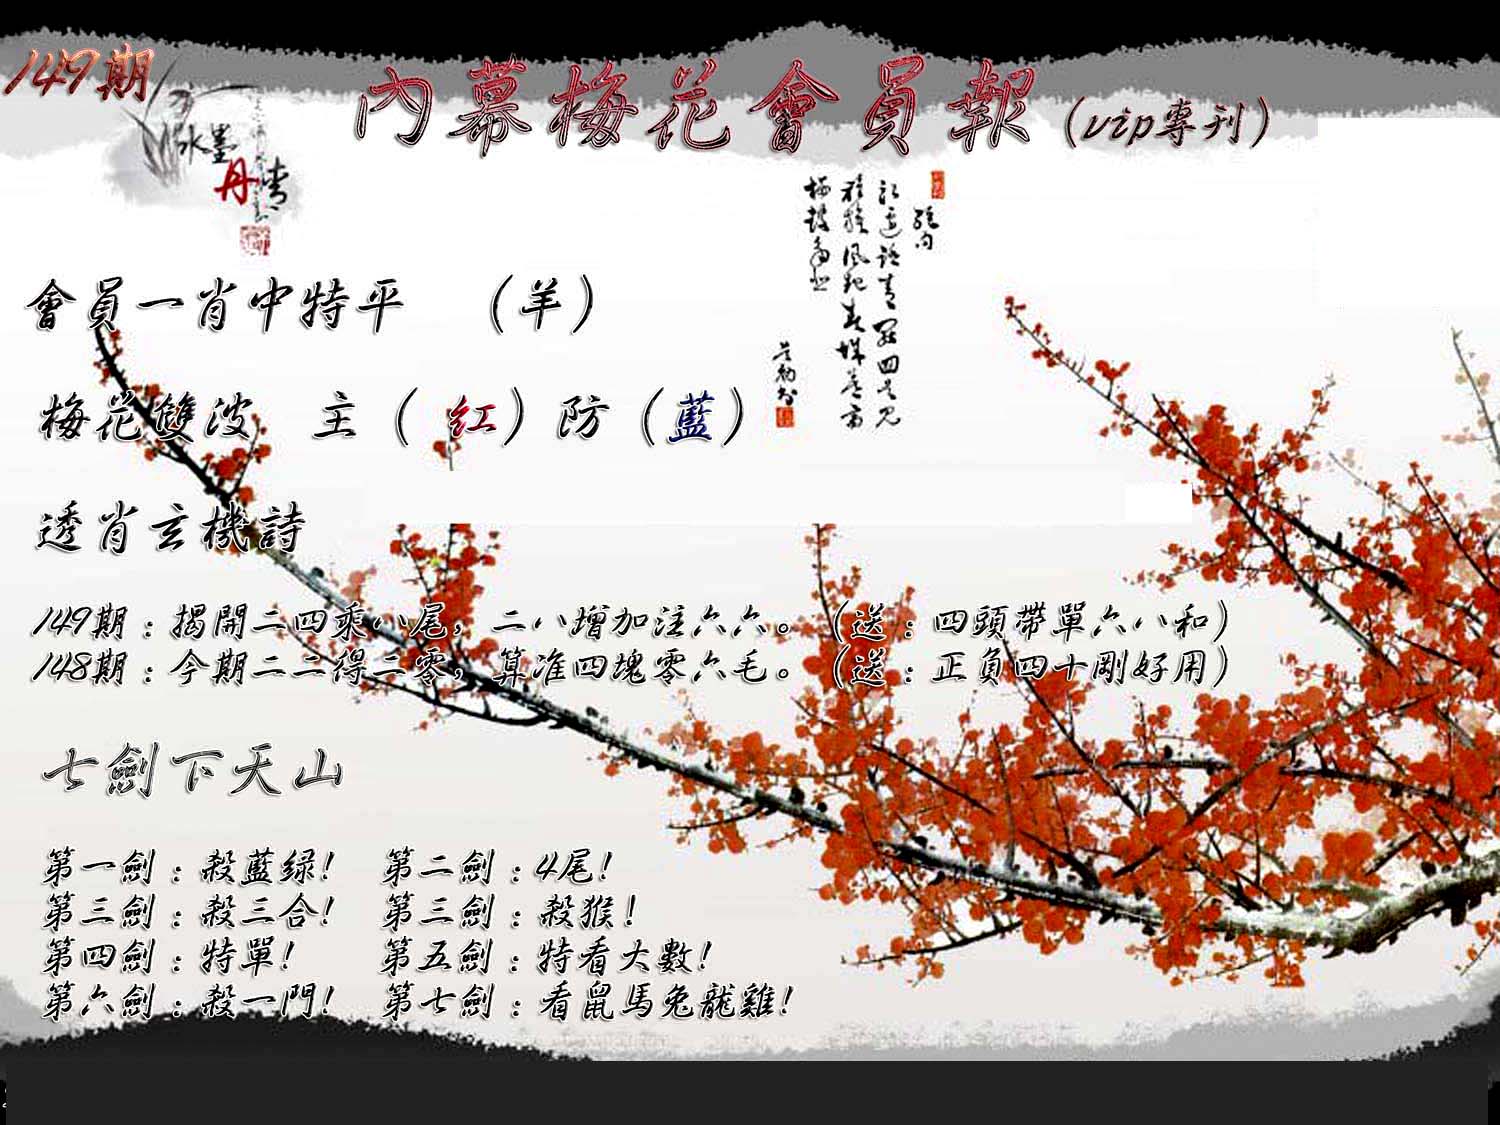 149期
內幕梅花會員報（vip專刊）
水墨
丹青
會員一肖中特平 （羊）
梅花雙波 主（紅）防（藍）
透肖玄機詩
149期：揭開二四乘八尾，二八增加注六六。（送：四頭帶單六八和）
148期：今期二二得二零，算准四塊零六毛。（送：正負四十剛好用）
七劍下天山
第一劍：殺藍绿！ 第二劍：4尾！
第三劍：殺三合！ 第三劍：殺猴！
第四劍：特單！ 第五劍：特看大數！
第六劍：殺一門！ 第七劍：看鼠馬兔龍雞！